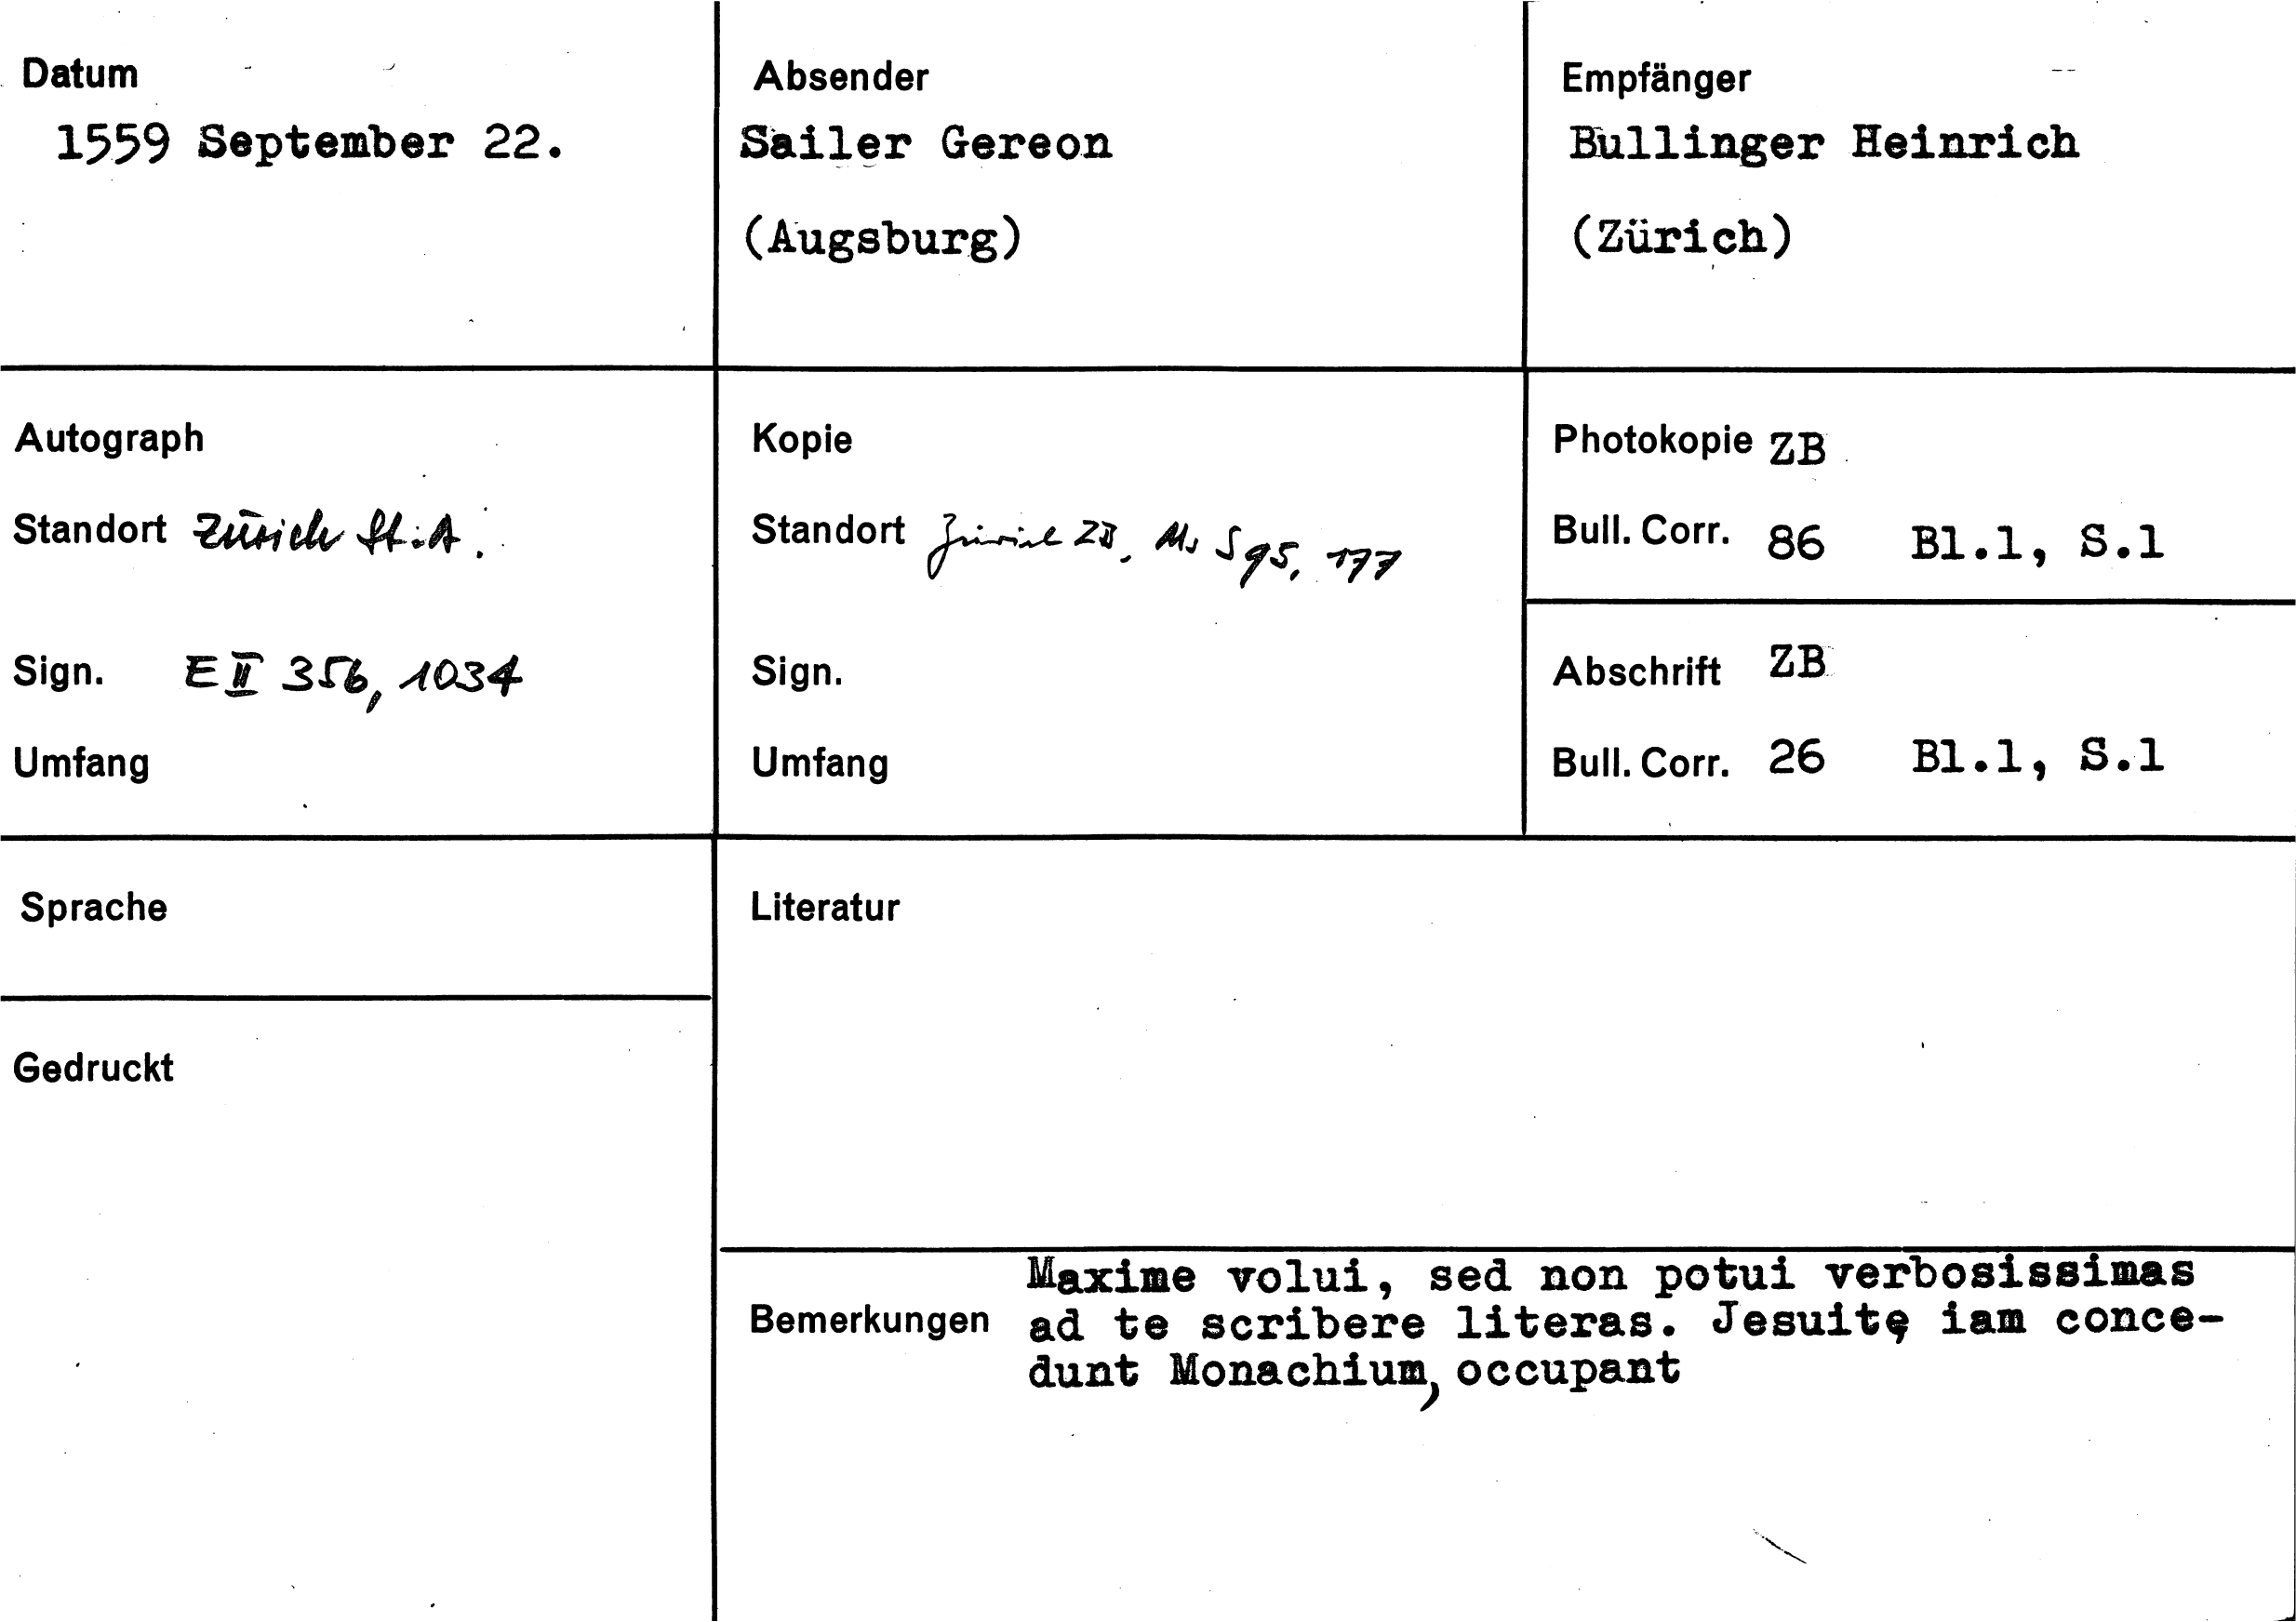 Datum
1559 September 22.
Absender
Sailer Gereon
(Augsburg)
Empfänger
Bullinger Heinrich
(Zürich)
Autograph
Standort Zürich St.A.
Sign. E II 356, 1034
Umfang
Kopie
Standort Zürich ZB, Ms S 95, 177
Sign.
Umfang
Photokopie ZB
Bull. Corr. 86 Bl.1, S.1
Abschrift ZB
Bull. Corr. 26 Bl.1, S.1
Sprache
Gedruckt
Literatur
Bemerkungen
Maxime volui, sed non potui verbosissimas
ad te scribere literas. Jesuitę iam conce-
dunt Monachium, occupant